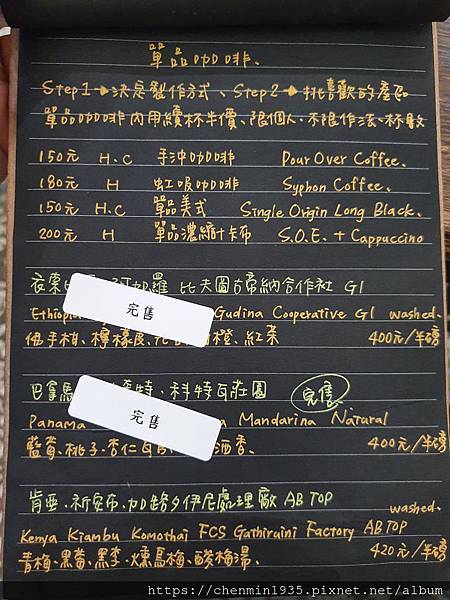 單品咖啡、
Step 1 → 決定製作方式、Step 2 → 挑喜歡的產區
單品咖啡內用續杯半價、限個人、不限作法、杯數
150元 H.C 手沖咖啡 Pour Over Coffee.
180元 H 虹吸咖啡 Syphon Coffee.
150元 H.C 單品美式 Single Origin Long Black.
200元 H 單品濃縮+卡布 S.O.E. + Cappuccino
衣索 羅 比夫圖古帝納合作社 G1
完售
Ethiopia Gudina Cooperative G1 washed.
佛手柑、檸檬皮、 柑橙、紅茶 400元/半磅
巴拿馬 特、科特瓦莊園 完售
完售
Panama Mandarina Natural
藍莓、桃子、杏仁 酒香、 400元/半磅
肯亞、祈安布、加路夕伊尼處理廠 AB TOP
washed.
Kenya Kiambu Komothai FCS Gathiruini Factory AB TOP
青梅、黑莓、黑李、燻烏梅、酸梅湯、 420元/半磅
https://chenmin1935.pixnet.net/album